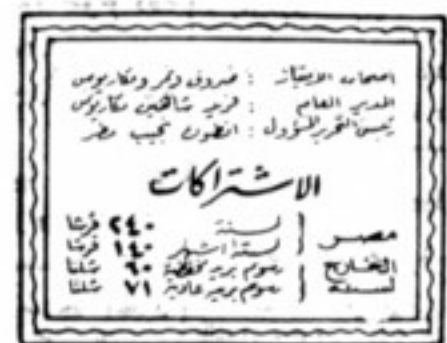 اصحاب الامتياز : صروف ونمر ومكاريوس
المدير العام : فريد شاهين مكاريوس
رئيس التحرير المسؤول : انطون نجيب مطر
الاشتراكات
مصر لسنة ٢٤٠ قرشا
لستة اشهر ١٤٠ قرشا
الخارج لسنة رسوم بريد مخفضة ٦٠ شلنا
رسوم بريد عادية ٧١ شلنا